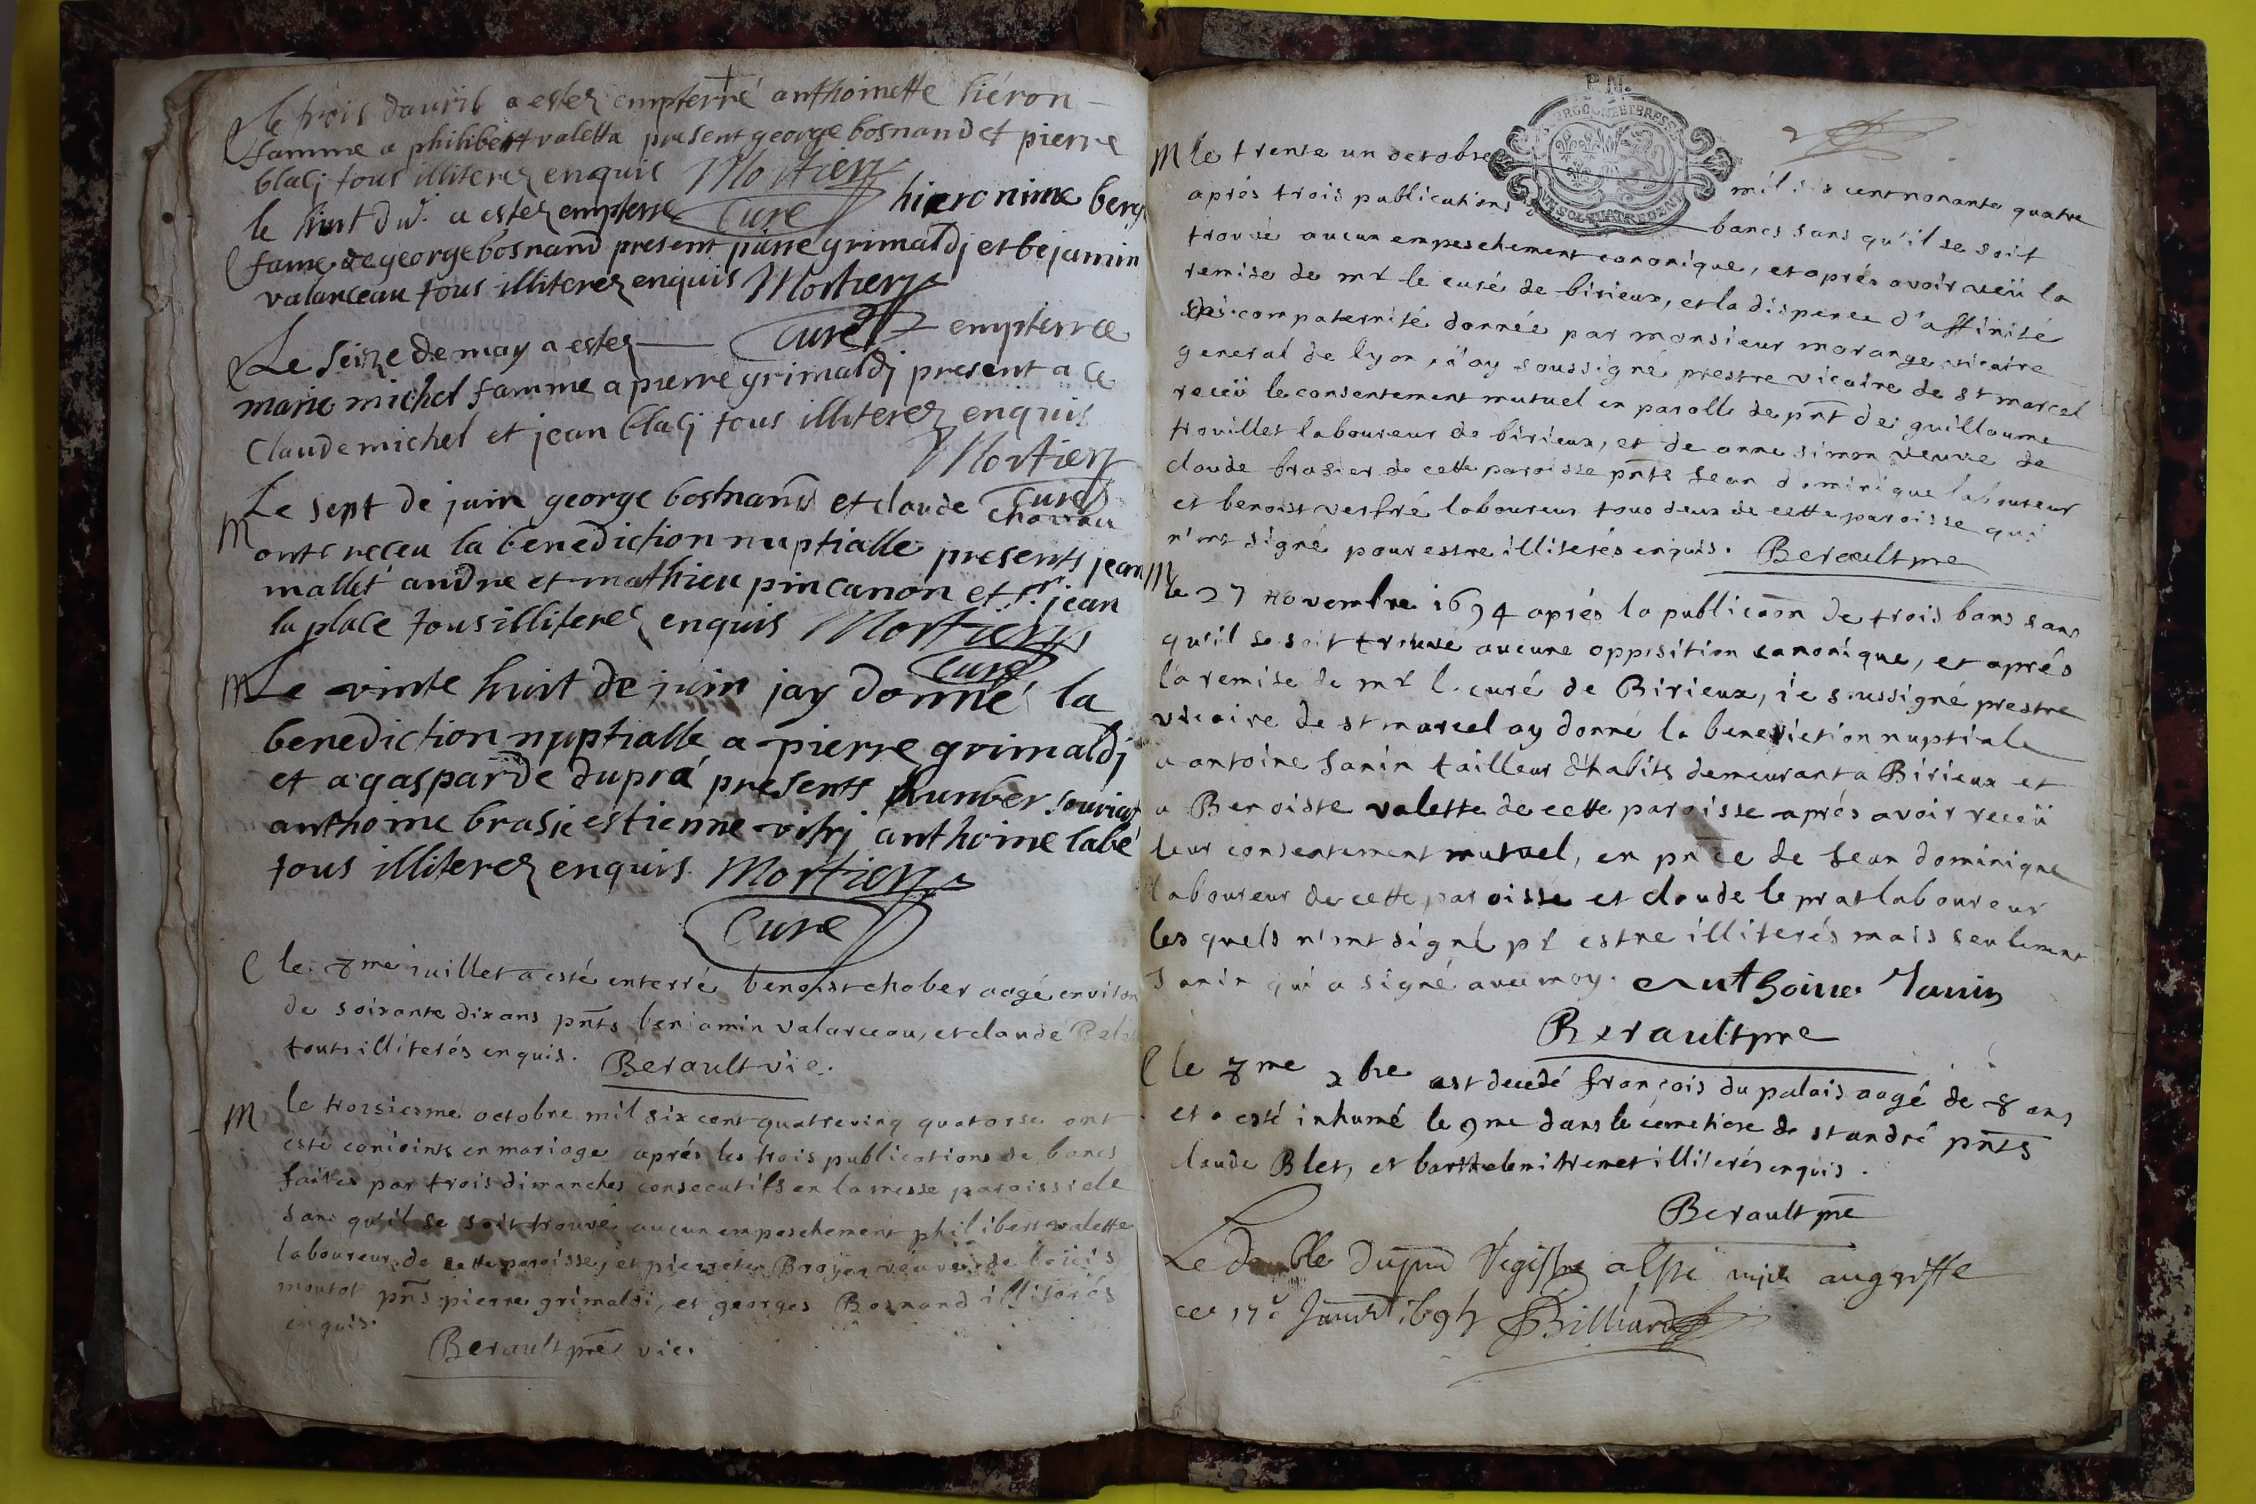 Le trois dauril a estez empterré anthoinette tiéron
famme a philibert valetta present george bosnand et pierre
blaci tous illiterez enquis Mortier
Cure
le huit dud. a estez empterre hieronime
fame de george bosnand present pierre grimaldj et bejamin
valanceau tous illiterez enquis Mortier
Curé
Le seize de may a estez empterree
marie michel famme a pierre grimaldj present a ce
Claude michel et jean blacj tous illiterez enquis
Mortier
Cure
M Le sept de juin george bosnand et claude
onte receu la benediction nuptialle presents jean
mallet andre et mathieu pincanon et sr jean
la place tous illiterez enquis Mortier
Cure
M Le vinte huit de juin jay donné la
benediction nuptialle a pierre grimaldj
et a gasparde dupra presents humber
anthoine brasie estienne vitrj anthoine labé
tous illiterez enquis Mortier
Cure
le 8me iuillet a esté enterré benoist chober aagé environ
de soixante dix ans pnts beniamin valarceau, et claude
touts illiterés enquis. Berault vic.
M le troisiesme octobre mil six cent quatreving quatorse ont
esté conioints en mariage aprés les trois publications de bancs
faites par trois dimanches consecutifs en la messe paroissiale
sans qu'il se soit trouvé aucun empeschement philibert valette
laboureur de cette paroisse, et pierrete Broyer veuve de loüis
moutot pnts pierre grimaldi, et georges Bosnand illiterés
enquis.
Berault pre vic.
P.N.
M le trente un octobre mil six cent nonante quatre
aprés trois publications bancs sans qu'il se soit
trouvé aucun empeschement canonique, et aprés avoir veü la
remise de mr le curé de birieux, et la dispence d'affinité
compaternité donnée par monsieur morange vicaire
general de lyon, i'ay soussigné prestre vicaire de st marcel
receü le consentement mutuel en parolle de pnt de guillaume
trouillet laboureur de birieux, et de anne simon veuve de
claude brasier de cette paroisse pnts Jean dominique laboureur
et benoist verfré laboureur tous deux de cette paroisse qui
n'ont signé pour estre illiterés enquis. Berault pre
M le 27 novembre 1694 aprés la publicaon de trois bans sans
qu'il se soit trouvé aucune opposition canonique, et aprés
la remise de mr le curé de Birieux, ie soussigné prestre
vicaire de st marcel ay donné la benediction nuptiale
a antoine Janin tailleur d'habits demeurant a Birieux et
a Benoiste valette de cette paroisse aprés avoir receü
leur consentement mutuel, en pnce de Jean dominique
laboureur de cette paroisse et claude le prat laboureur
les quels n'ont signé pr estre illiterés mais seulement
Janin qui a signé avec moy. Anthoine Janin
Berault pre
le 8me xbre est decedé françois du palais aagé de 8 ans
et a esté inhumé le 9me dans le cemetiere de st andré pnts
claude Blet, et barthelemi tremet illiterés enquis.
Berault pre
Le double dupnt Registre a esté mis au greffe
ce 17e Janvr 1695 Billiard